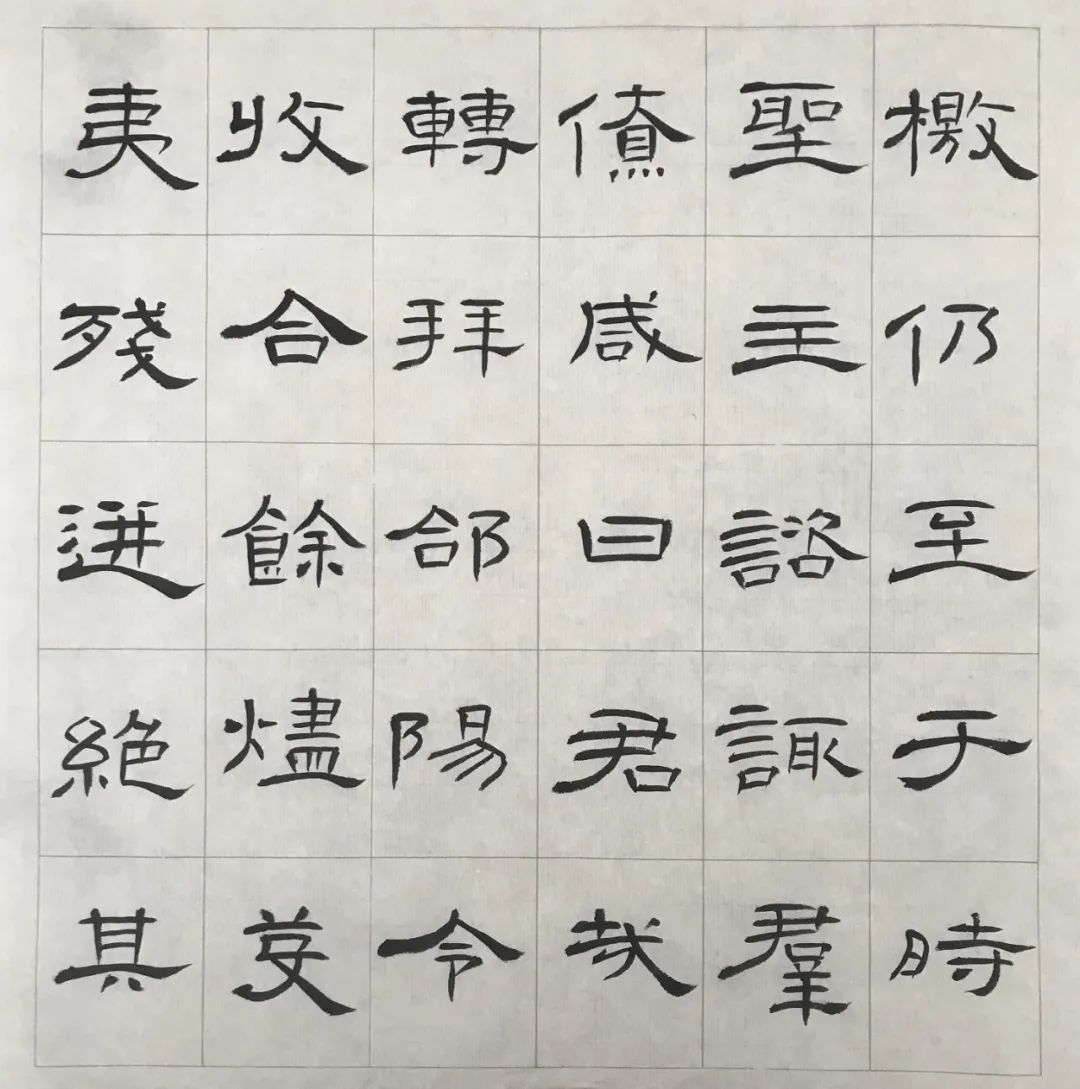 檄仍至于時
聖主諮諏羣
僚咸曰君哉
轉拜郃陽令
收合餘燼芟
夷殘迸絶其